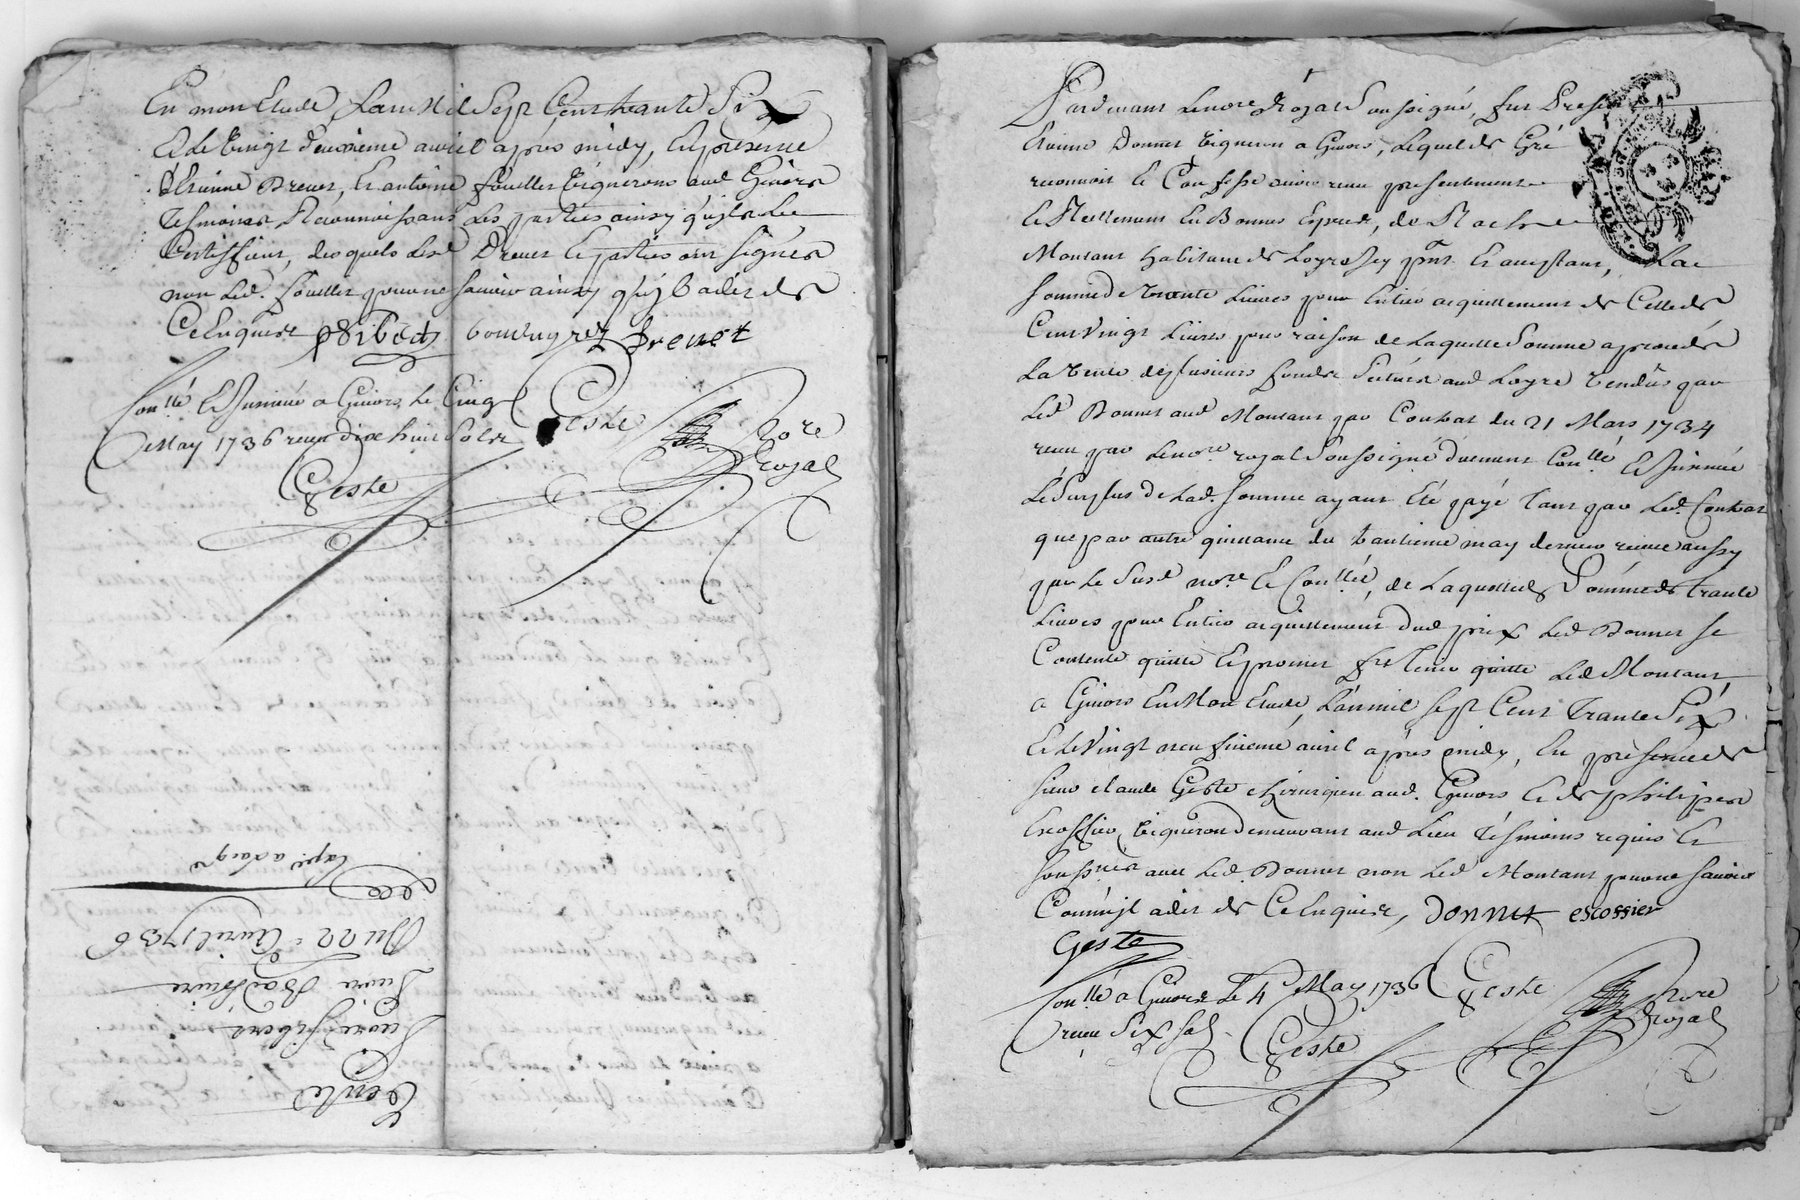 En mon Etude, Lan Mil Sept Cent trante Six
Et Le Vingt Deuxieme avril après midy, En présence
d'Etienne Drevet, Et antoine fouillet Vignerons aud Givors
Tesmoins Reconnoissans Les parties ainsy qu'ils Le
Certiffient, desquels Led Drevet Et parties ont signés
non Led. fouillet pour ne scavoir ainsy qu'il a dit de
Ce Enquis gribert bonrugrez Drevet
Conllé Et Insinué a Givors Le Cinq
May 1736 receu dix huit Sols
Geste
Geste
Nore
Royal
Vente
Sieur
Sieur
Du 22e Avril 1736
Pardevant Le nore Royal Soussigné, fut Present
Etienne Donnet Vigneron a Givors, Lequel de Gré
reconnoit Et Confesse avoir receu presentement
Et Reellement En Bonnes Especes, de
Montant habitant de Loyre Icy pnt Et acceptant, La
somme de trante Livres pour Entier acquittement de Celle de
Cent Vingt Livres pour raison de Laquelle Somme a procedé
La Vente de plusieurs fonds Scitués aud Loyre Vendus par
Led Donnet aud Montant par Contrat du 21 Mars 1734
receu par Le nore royal Soussigné Duement Conllé Et Insinué
Le Surplus de Lad. somme ayant Eté payé tant par Led. Contrat
que par autre quittance du trantieme may dernier receue aussy
par Le Susd nore Et Conllée, de Laquelle Somme de trante
Livres pour Entier acquittement dud prix Led Donnet se
Contente quitte Et promet fre tenir quitte Led Montant
a Givors En Mon Etude, L'an mil Sept Cent Trante Six
Et Le Vingt neufvieme avril après midy, En presence de
sieur claude Geste chirurgien aud. Givors Et de philipes
Escossier Vigneron demeurant aud Lieu Tesmoins requis Et
soussnes avec Led. Donnet non Led Montant pour ne scavoir
Comm'il a dit de Ce Enquis, Donnet escossier
Geste
Conllé a Givors Le 4e May 1736
receu Six Sols
Geste
Geste
Nore
Royal